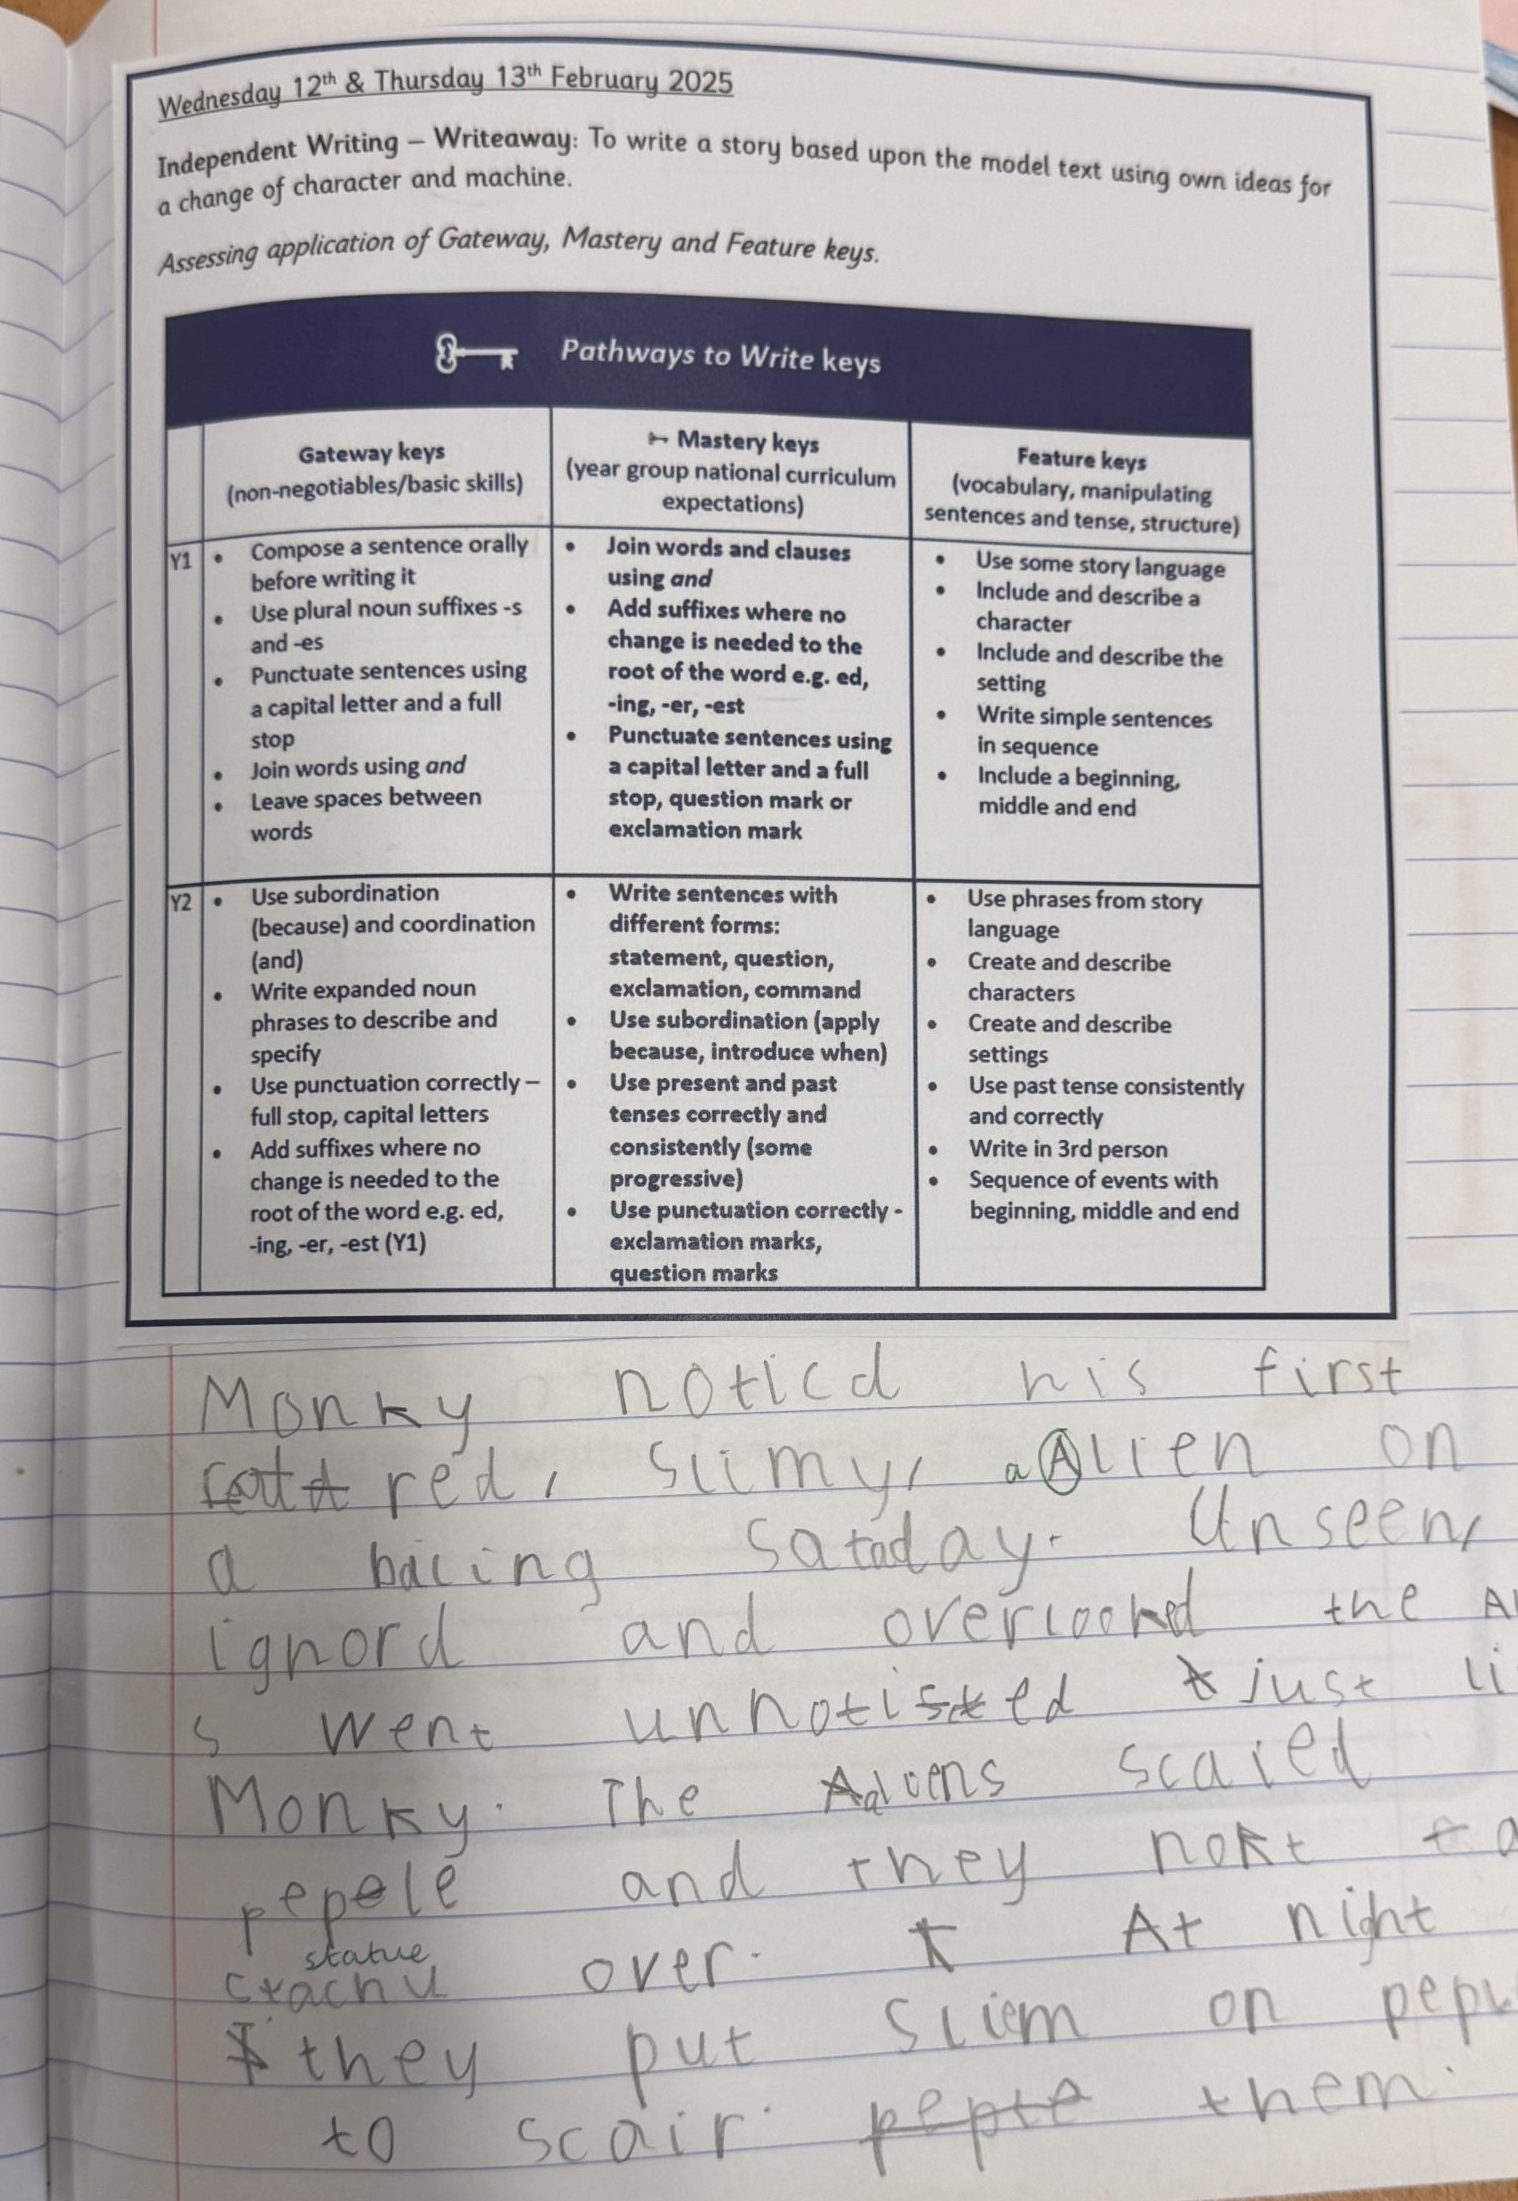 Wednesday 12th & Thursday 13th February 2025
Independent Writing – Writeaway: To write a story based upon the model text using own ideas for
a change of character and machine.
Assessing application of Gateway, Mastery and Feature keys.
Pathways to Write keys
Gateway keys
(non-negotiables/basic skills)
Mastery keys
(year group national curriculum
expectations)
Feature keys
(vocabulary, manipulating
sentences and tense, structure)
Y1
• Compose a sentence orally
before writing it
• Use plural noun suffixes -s
and -es
• Punctuate sentences using
a capital letter and a full
stop
• Join words using and
• Leave spaces between
words
• Join words and clauses
using and
• Add suffixes where no
change is needed to the
root of the word e.g. ed,
-ing, -er, -est
• Punctuate sentences using
a capital letter and a full
stop, question mark or
exclamation mark
• Use some story language
• Include and describe a
character
• Include and describe the
setting
• Write simple sentences
in sequence
• Include a beginning,
middle and end
Y2
• Use subordination
(because) and coordination
(and)
• Write expanded noun
phrases to describe and
specify
• Use punctuation correctly –
full stop, capital letters
• Add suffixes where no
change is needed to the
root of the word e.g. ed,
-ing, -er, -est (Y1)
• Write sentences with
different forms:
statement, question,
exclamation, command
• Use subordination (apply
because, introduce when)
• Use present and past
tenses correctly and
consistently (some
progressive)
• Use punctuation correctly -
exclamation marks,
question marks
• Use phrases from story
language
• Create and describe
characters
• Create and describe
settings
• Use past tense consistently
and correctly
• Write in 3rd person
• Sequence of events with
beginning, middle and end
Monky noticd his first
red, slimy, a Alien on
a bacing Sataday. Unseen,
ignord and overlooked the Al
s went unnotised just li
Monky. The scaied
pepele and they nokt
statue
stachu over. At night
they put sliem on
to scair them.